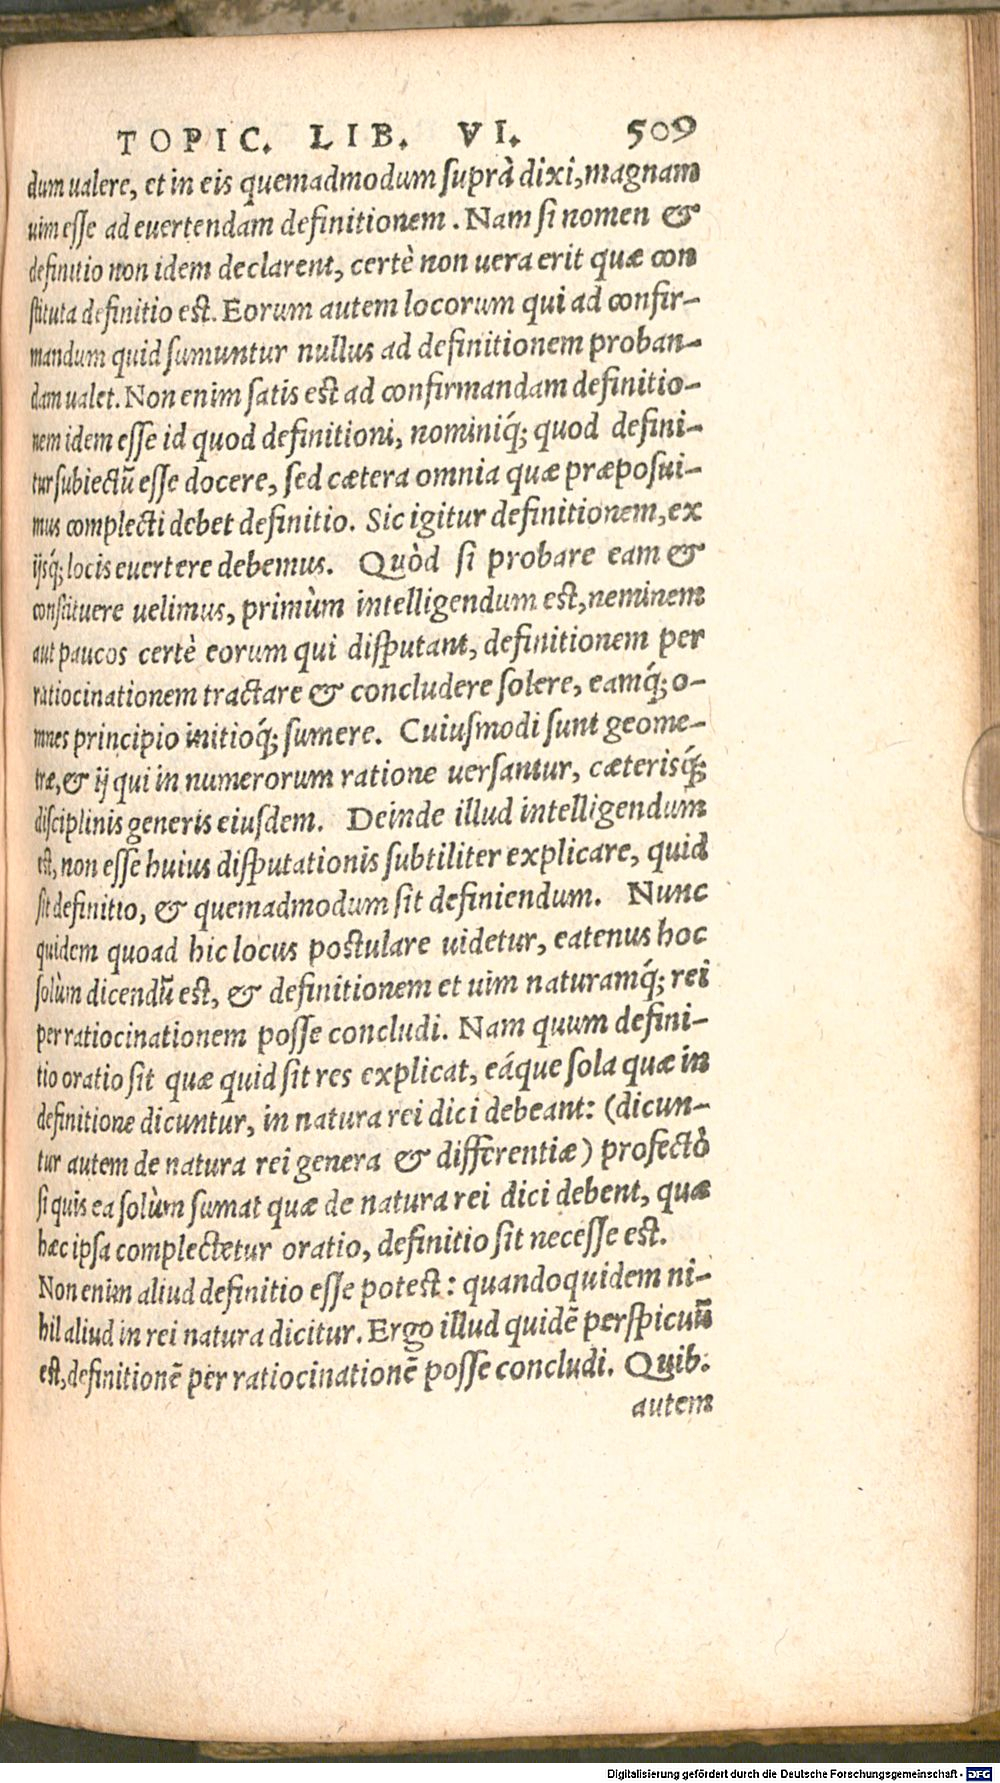 TOPIC. LIB. VI. 509
dum ualere, et in eis quemadmodum suprà dixi, magnam
uim esse ad euertendam definitionem. Nam si nomen &
definitio non idem declarent, certè non uera erit quæ con
stituta definitio est. Eorum autem locorum qui ad confir-
mandum quid sumuntur nullus ad definitionem proban-
dam ualet. Non enim satis est ad confirmandam definitio-
nem idem esse id quod definitioni, nominiq́; quod defini-
tur subiectũ esse docere, sed cætera omnia quæ præposui-
mus complecti debet definitio. Sic igitur definitionem, ex
ijsq́; locis euertere debemus. Quòd si probare eam &
constituere uelimus, primùm intelligendum est, neminem
aut paucos certè eorum qui disputant, definitionem per
ratiocinationem tractare & concludere solere, eamq́; o-
mnes principio initioq́; sumere. Cuiusmodi sunt geome-
træ, & ij qui in numerorum ratione uersantur, cæterisq́;
disciplinis generis eiusdem. Deinde illud intelligendum
est, non esse huius disputationis subtiliter explicare, quid
sit definitio, & quemadmodum sit definiendum. Nunc
quidem quoad hic locus postulare uidetur, eatenus hoc
solùm dicendũ est, & definitionem et uim naturamq́; rei
per ratiocinationem posse concludi. Nam quum defini-
tio oratio sit quæ quid sit res explicat, eáque sola quæ in
definitione dicuntur, in natura rei dici debeant: (dicun-
tur autem de natura rei genera & differentiæ) profectò
si quis ea solùm sumat quæ de natura rei dici debent, quæ
hæc ipsa complectetur oratio, definitio sit necesse est.
Non enim aliud definitio esse potest: quandoquidem ni-
hil aliud in rei natura dicitur. Ergo illud quidẽ perspicuũ
est, definitionẽ per ratiocinationẽ posse concludi. Quib.
autem
Digitalisierung gefördert durch die Deutsche Forschungsgemeinschaft - DFG